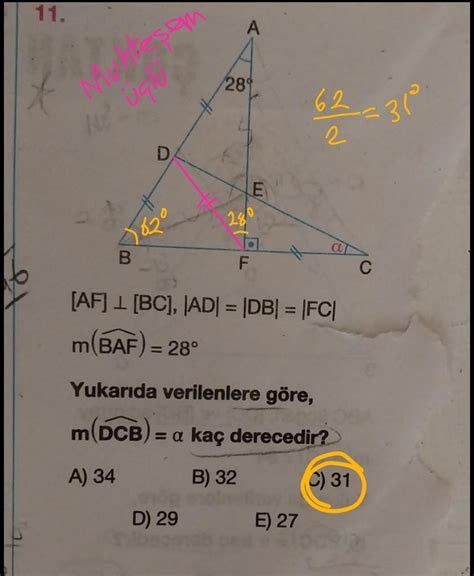 11.
Muhteşem
üçlü
A
28°
62/2 = 31°
D
E
62°
28°
α
B
F
C
[AF] ⊥ [BC], |AD| = |DB| = |FC|
m(BAF) = 28°
Yukarıda verilenlere göre,
m(DCB) = α kaç derecedir?
A) 34 B) 32 C) 31
D) 29 E) 27